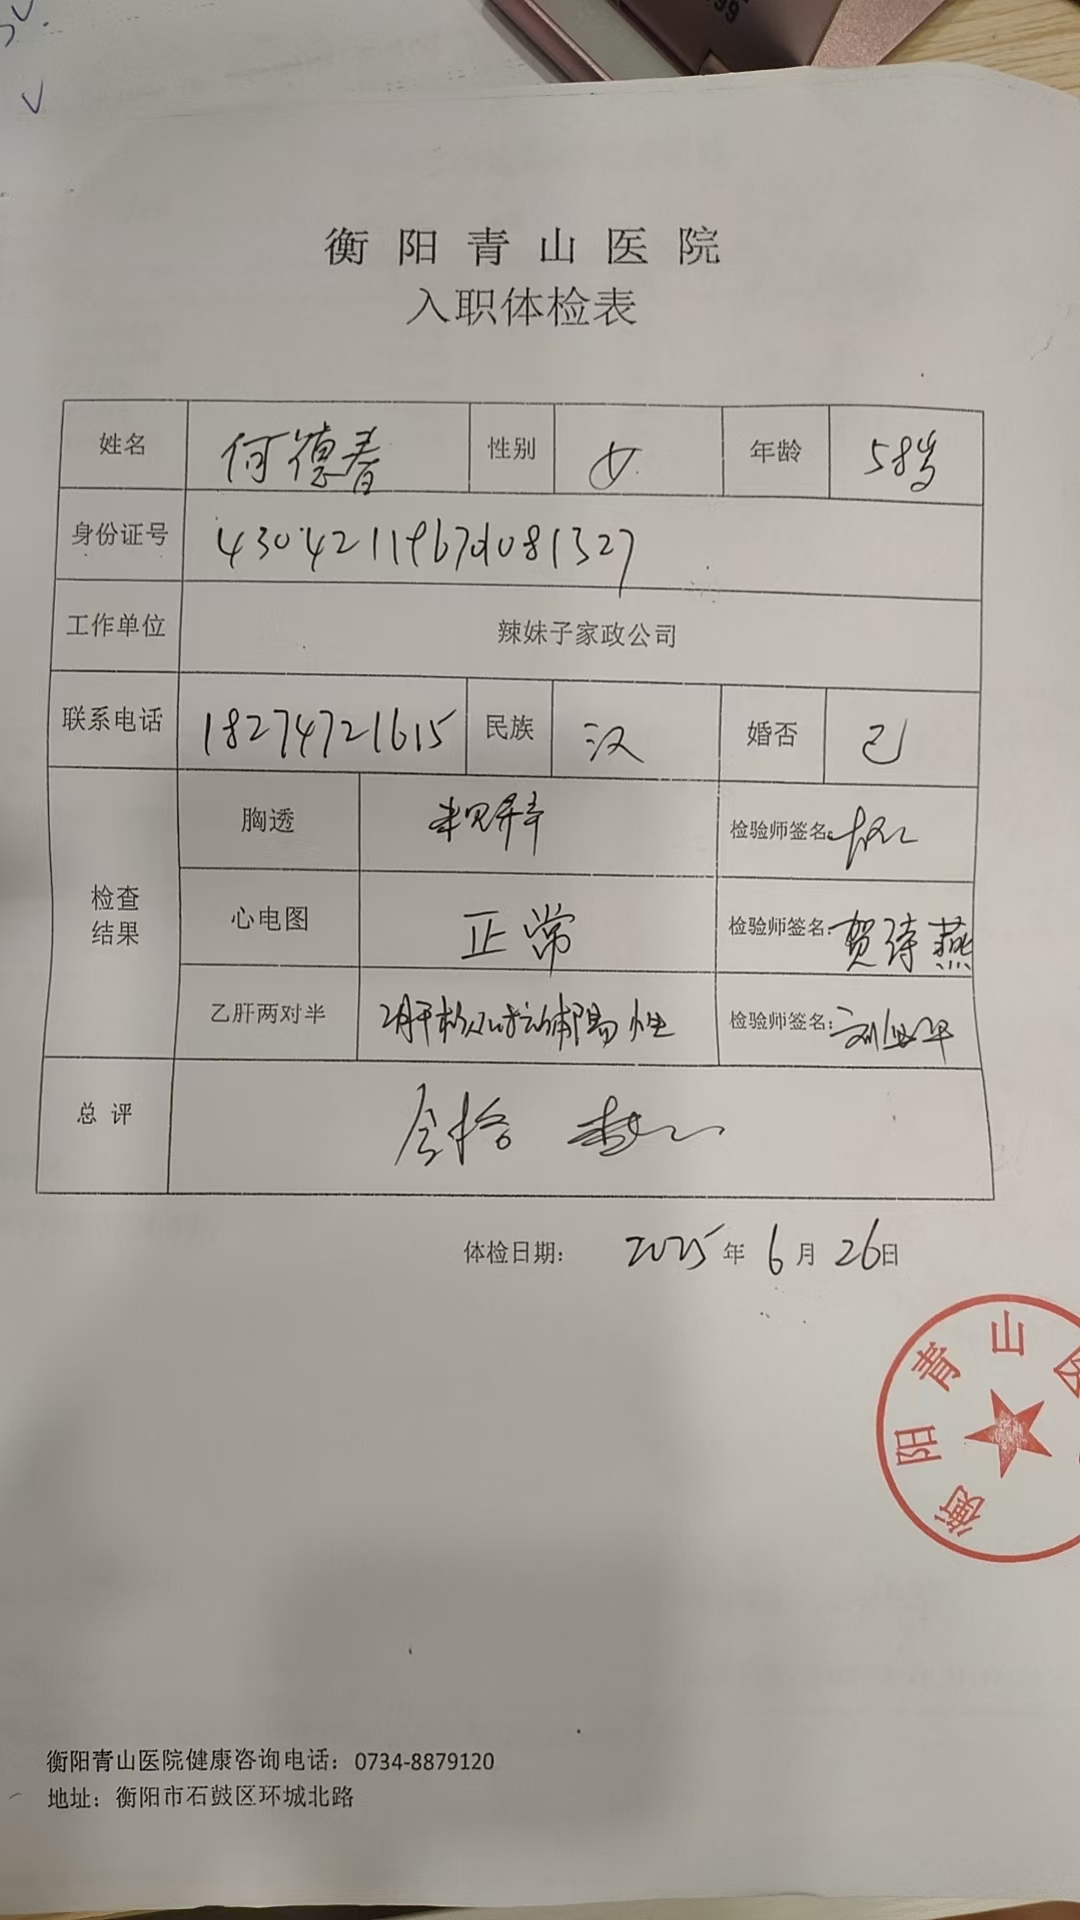 衡阳青山医院
入职体检表
姓名 何德春 性别 女 年龄 58岁
身份证号
工作单位 辣妹子家政公司
联系电话 18274721615 民族 汉 婚否 已
检查结果
胸透 未见异常 检验师签名:
心电图 正常 检验师签名: 贺诗燕
乙肝两对半 乙肝核心抗体阳性 检验师签名:
总评 合格
体检日期: 2025年6月26日
衡阳青山医
衡阳青山医院健康咨询电话:0734-8879120
地址:衡阳市石鼓区环城北路